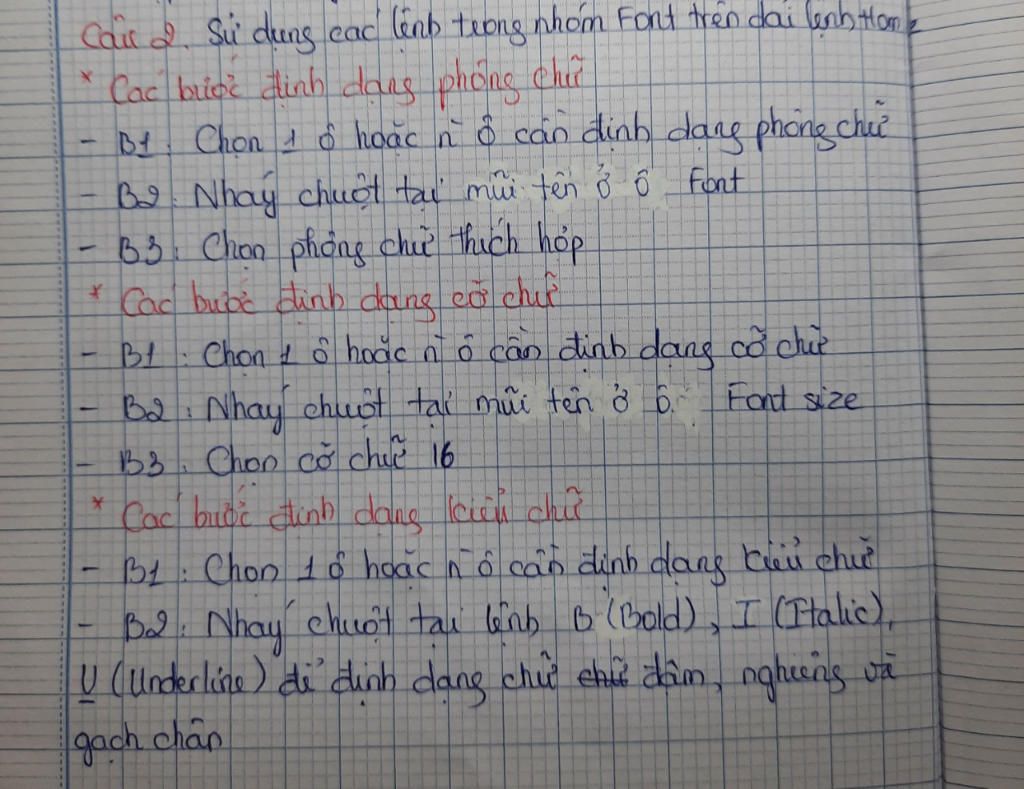 Câu 2. Sử dụng các lệnh trong nhóm Font trên dải lệnh Home
* Các bước định dạng phông chữ
- B1: Chọn 1 ô hoặc n ô cần định dạng phông chữ
- B2: Nháy chuột tại mũi tên ở ô Font
- B3: Chọn phông chữ thích hợp
* Các bước định dạng cỡ chữ
- B1: Chọn 1 ô hoặc n ô cần định dạng cỡ chữ
- B2: Nháy chuột tại mũi tên ở ô Font size
- B3: Chọn cỡ chữ 16
* Các bước định dạng kiểu chữ
- B1: Chọn 1 ô hoặc n ô cần định dạng kiểu chữ
- B2: Nháy chuột tại lệnh B (Bold), I (Italic),
U (Underline) để định dạng chữ chữ đậm, nghiêng và
gạch chân